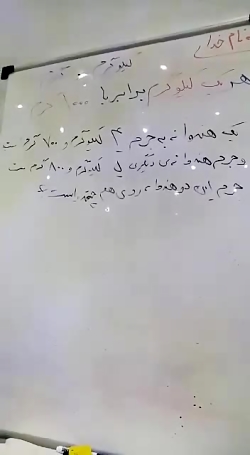 بنام خدا
کیلوگرم . گرم
هر یک کیلوگرم برابر با ۱۰۰۰ گرم
یک هندوانه به جرم ۴ کیلوگرم و ۷۰۰ گرم است
و جرم هندوانه‌ی دیگری کیلوگرم و ۸۰۰ گرم است
جرم این دو هندوانه روی هم چقدر است؟